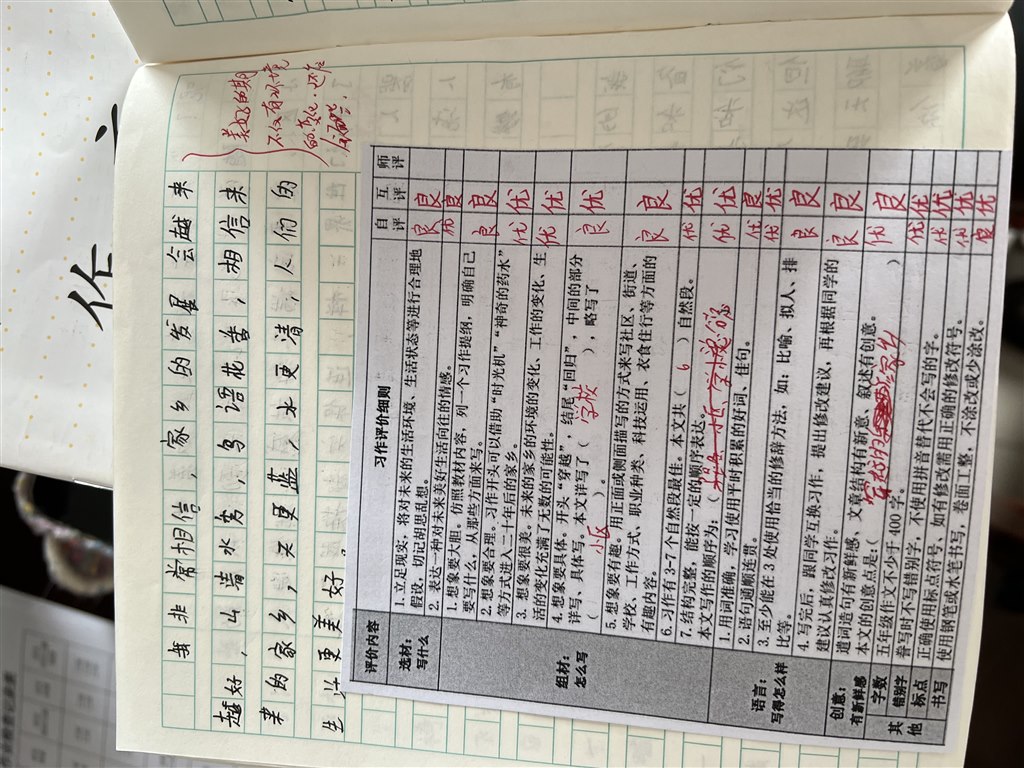 我非常相信，家乡的发展会越来
越好，山青水秀，鸟语花香，相信未
来的家乡，天更蓝，水更清，人们的
生活更美好。
美好的期
不仅有环境
的变化，还有
作
评价内容 习作评价细则 自评 互评 师评
选材：写什么
1. 立足现实，将对未来的生活环境、生活状态等进行合理地 良 良
假设，切记胡思乱想。
2. 表达一种对未来美好生活向往的情感。 优 良
组材：怎么写
1. 想象要大胆。仿照教材内容，列一个习作提纲，明确自己 良 良
要写什么，从那些方面来写。
2. 想象要合理。习作开头可以借助“时光机”“神奇的药水” 优 优
等方式进入二十年后的家乡。
3. 想象要很美。未来的家乡的环境的变化、工作的变化、生 优 优
活的变化充满了无数的可能性。
4. 想象要具体。开头“穿越”，结尾“回归”，中间的部分 良 优
详写、具体写。本文详写了（ 学校 ），略写了
（ 小区 ）。
5. 想象要有趣。用正面或侧面描写的方式来写社区、街道、 良 良
学校、工作方式、职业种类、科技运用、衣食住行等方面的
有趣内容。
6. 习作有 3-7 个自然段最佳。本文共（ 6 ）自然段。 优 优
7. 结构完整，能按一定的顺序表达。 优 优
本文写作的顺序为：（
语言：写得怎么样
1. 用词准确，学习使用平时积累的好词、佳句。
2. 语句通顺连贯。 优 良
3. 至少能在 3 处使用恰当的修辞方法，如：比喻、拟人、排 优 优
比等。
4. 写完后，跟同学互换习作，提出修改建议，再根据同学的 良 良
建议认真修改习作。
创意：有新鲜感
遣词造句有新鲜感、文章结构有新意、叙述有创意。 良 良
本文的创意点是：（ 家乡 ）
其他
字数 五年级作文不少于 400 字。 优 良
错别字 誊写时不写错别字，不使用拼音替代不会写的字。 优 优
标点 正确使用标点符号、如有修改需用正确的修改符号。 优 优
书写 使用钢笔或水笔书写，卷面工整，不涂改或少涂改。 良 优